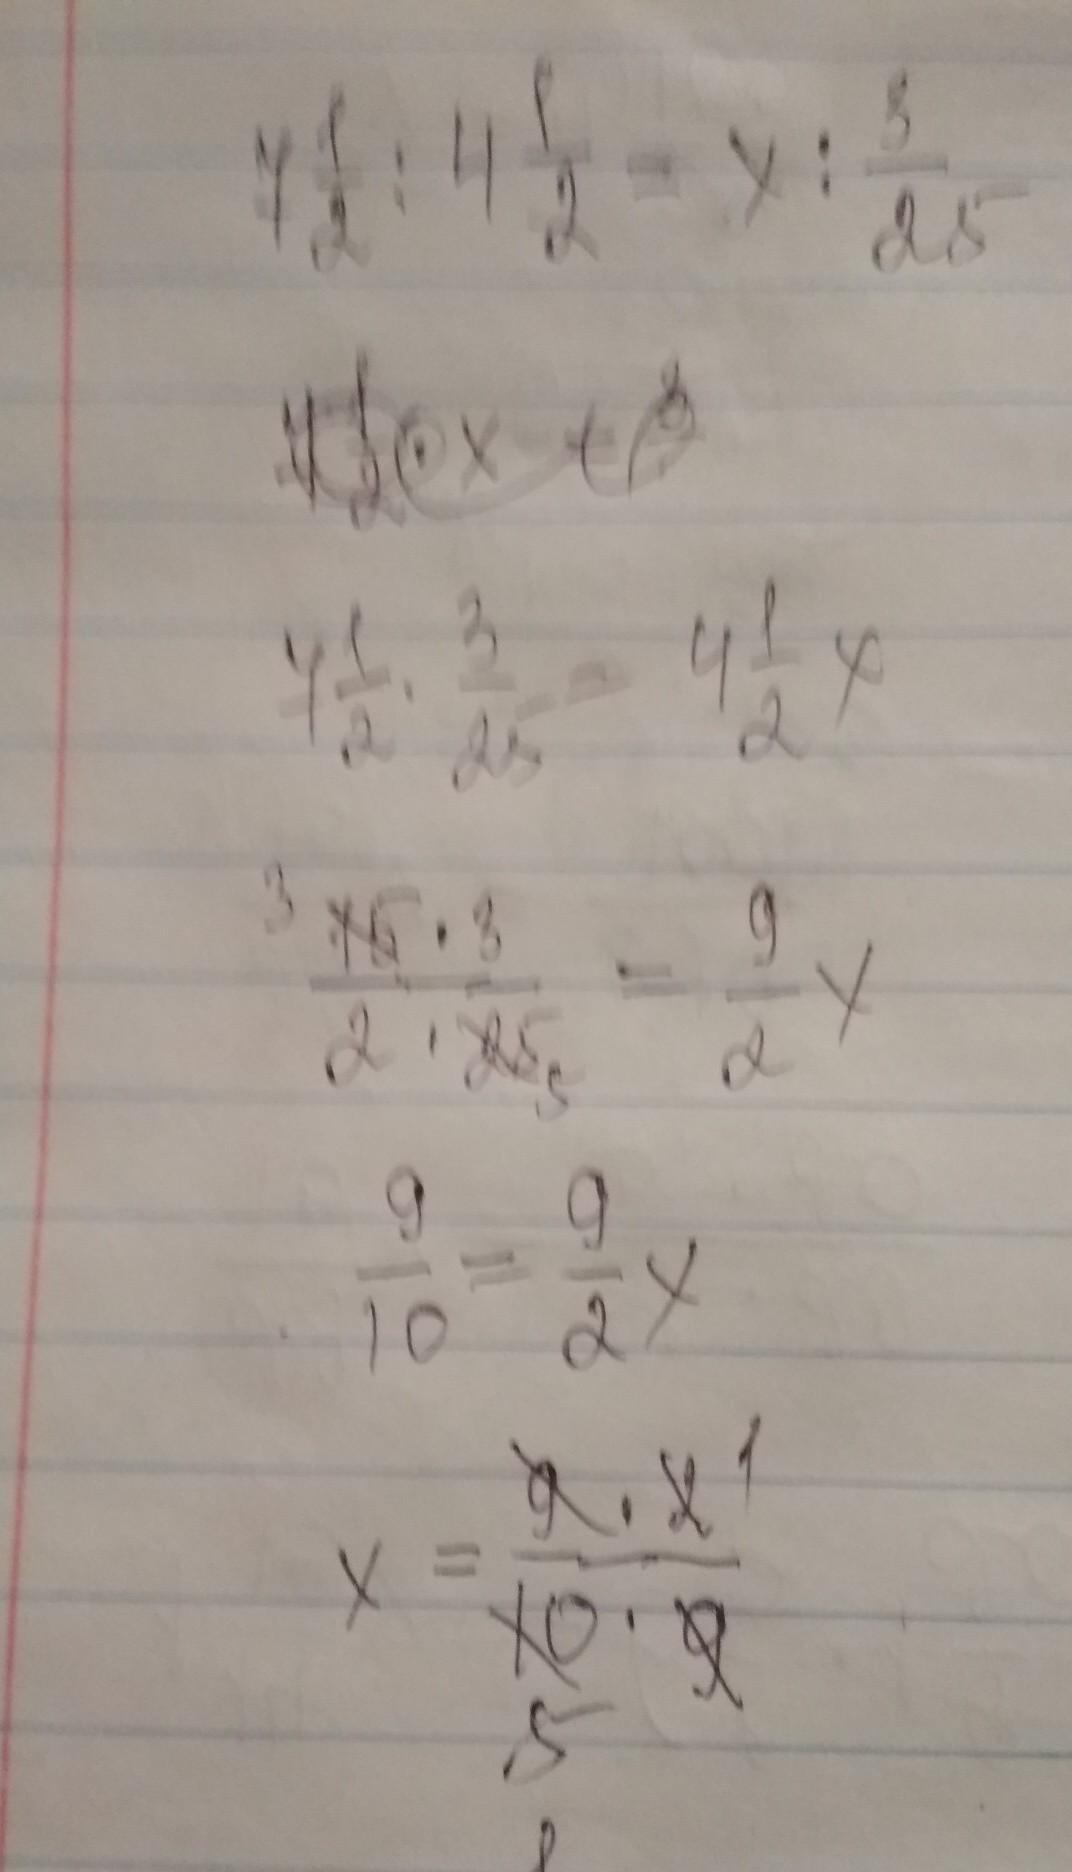 7 1/2 : 4 1/2 = x : 3/25
7 1/2 · 3/25 = 4 1/2 x
3 15 · 3 / 2 · 25 5 = 9/2 x
9/10 = 9/2 x
x = 9 · 2 1 / 10 · 9
5